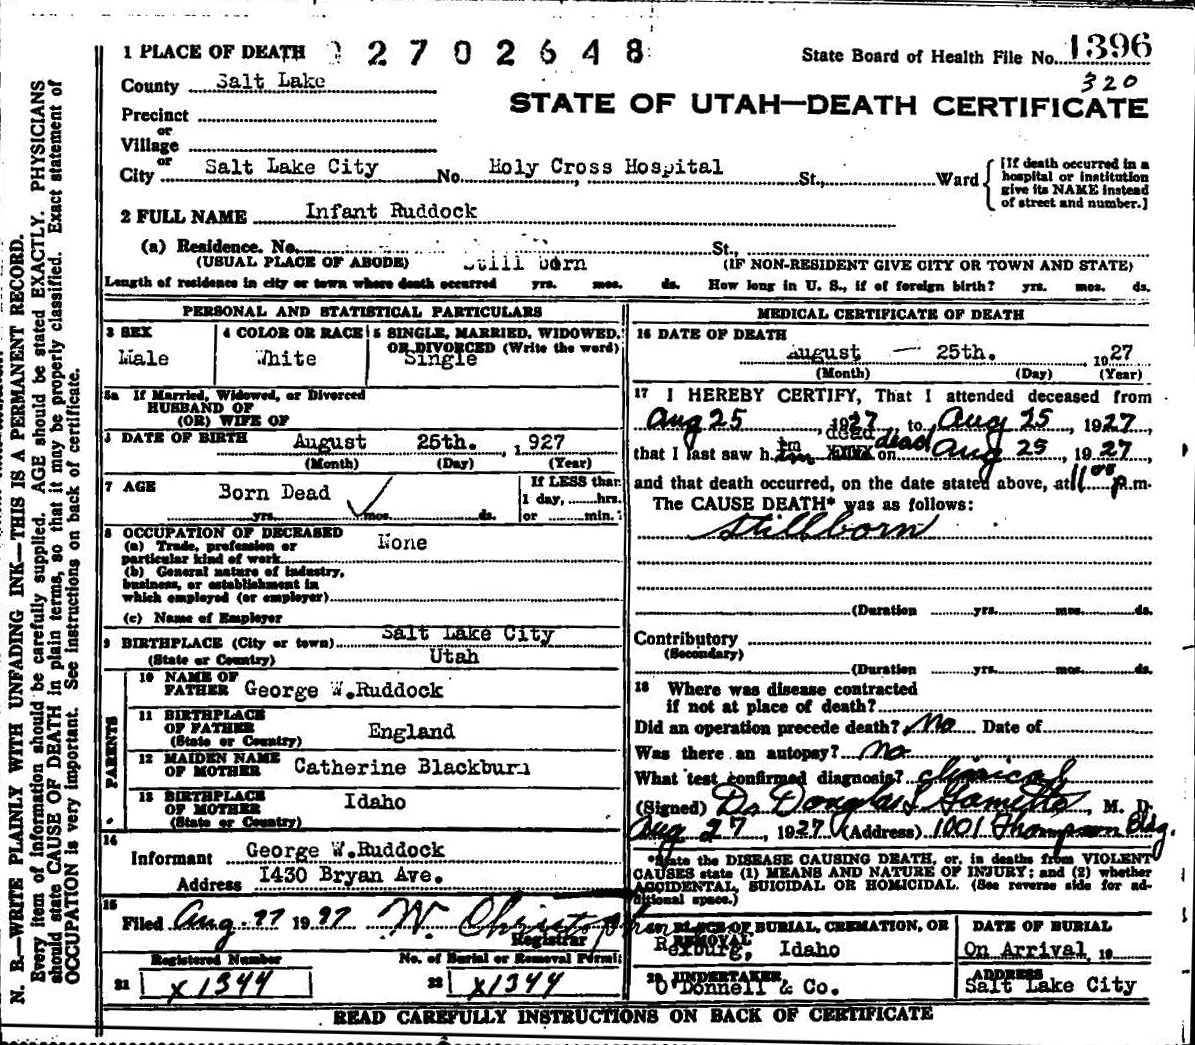 1 PLACE OF DEATH 2702648 State Board of Health File No. 1396
County Salt Lake 320
STATE OF UTAH—DEATH CERTIFICATE
Precinct
or
Village
or
City Salt Lake City No. Holy Cross Hospital St., Ward
[If death occurred in a
hospital or institution
give its NAME instead
of street and number.]
2 FULL NAME Infant Ruddock
(a) Residence. No. St.,
(USUAL PLACE OF ABODE) Still born (IF NON-RESIDENT GIVE CITY OR TOWN AND STATE)
Length of residence in city or town where death occurred yrs. mos. ds. How long in U. S., if of foreign birth? yrs. mos. ds.
PERSONAL AND STATISTICAL PARTICULARS
3 SEX 4 COLOR OR RACE 5 SINGLE, MARRIED, WIDOWED,
OR DIVORCED (Write the word)
Male White Single
5a If Married, Widowed, or Divorced
HUSBAND OF
(OR) WIFE OF
DATE OF BIRTH August 25th. , 1927
(Month) (Day) (Year)
7 AGE Born Dead If LESS than
1 day, hrs.
yrs. mos. ds. or min.
8 OCCUPATION OF DECEASED
(a) Trade, profession or
particular kind of work None
(b) General nature of industry,
business, or establishment in
which employed (or employer)
(c) Name of Employer
9 BIRTHPLACE (City or town) Salt Lake City
(State or Country) Utah
PARENTS
10 NAME OF
FATHER George W.Ruddock
11 BIRTHPLACE
OF FATHER England
(State or Country)
12 MAIDEN NAME
OF MOTHER Catherine Blackburn
13 BIRTHPLACE
OF MOTHER Idaho
(State or Country)
14
Informant George W.Ruddock
Address 1430 Bryan Ave.
15
Filed Aug. 27 1927 W. Christopherson
Registrar
Registered Number No. of Burial or Removal Permit
21 x1344 22 x1344
MEDICAL CERTIFICATE OF DEATH
16 DATE OF DEATH
August — 25th. , 1927
(Month) (Day) (Year)
17 I HEREBY CERTIFY, That I attended deceased from
Aug 25 , 1927 , to Aug 25 , 1927,
that I last saw h im dead on Aug 25 , 1927,
and that death occurred, on the date stated above, at 11 05 p.m.
The CAUSE DEATH* was as follows:
Stillborn
(Duration yrs. mos. ds.
Contributory
(Secondary)
(Duration yrs. mos. ds.
18 Where was disease contracted
if not at place of death?
Did an operation precede death? No Date of
Was there an autopsy? No
What test confirmed diagnosis? clinical
(Signed) Dr Douglas , M. D.
Aug 27 , 1927 (Address) 1001 Thompson Bldg.
*State the DISEASE CAUSING DEATH, or, in deaths from VIOLENT
CAUSES state (1) MEANS AND NATURE OF INJURY; and (2) whether
ACCIDENTAL, SUICIDAL OR HOMICIDAL. (See reverse side for ad-
ditional space.)
PLACE OF BURIAL, CREMATION, OR
REMOVAL
Rexburg, Idaho
DATE OF BURIAL
On Arrival, 19
20 UNDERTAKER
O'Donnell & Co.
ADDRESS
Salt Lake City
READ CAREFULLY INSTRUCTIONS ON BACK OF CERTIFICATE
N. B.—WRITE PLAINLY WITH UNFADING INK—THIS IS A PERMANENT RECORD.
Every item of information should be carefully supplied. AGE should be stated EXACTLY. PHYSICIANS
should state CAUSE OF DEATH in plain terms, so that it may be properly classified. Exact statement of
OCCUPATION is very important. See instructions on back of certificate.